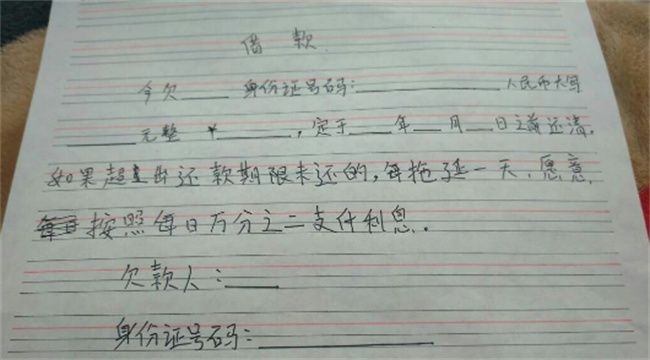 借款
今欠____身份证号码:____________人民币大写
____元整 ¥______,定于____年__月__日之前还清.
如果超出还款期限未还的,每拖延一天.愿意.
按照每日万分之二支付利息.
欠款人:____
身份证号码:____________